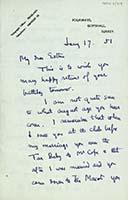 Jany 17. 51
My dear Esther
This is to wish you
many happy returns of your
birthday tomorrow.
I am not quite sure
to what august age you have
come. I remember that when
I saw you at the club before
my marriage you were the
Tea Baby to Mr Cope & that
after I was married and you
came down to the Mascot you